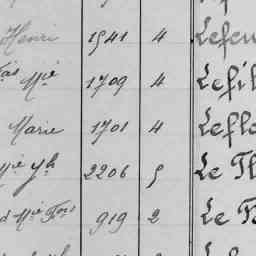 Henri 1541 4 Lefeu
Mie 1709 4 Lefil
Marie 1701 4 Lefla
Mie Yh 2206 5 Le Th
d Mie Fois 919 2 Le F